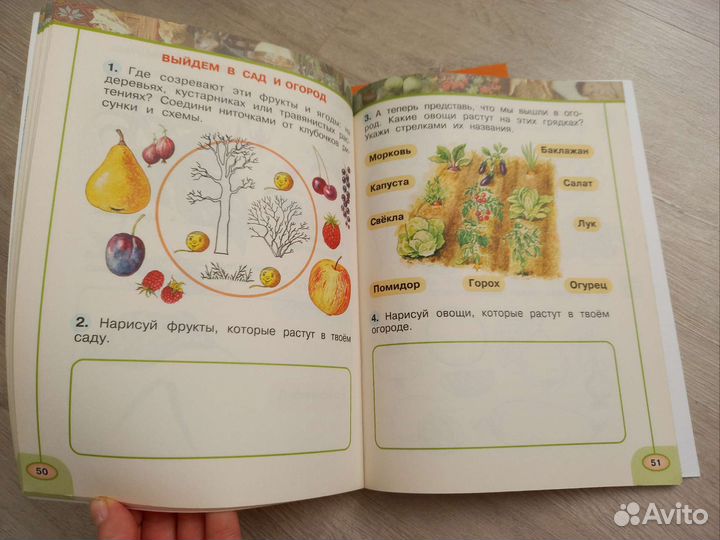 ВЫЙДЕМ В САД И ОГОРОД
1. Где созревают эти фрукты и ягоды: на
деревьях, кустарниках или травянистых рас-
тениях? Соедини ниточками от клубочков ри-
сунки и схемы.
2. Нарисуй фрукты, которые растут в твоём
саду.
50
3. А теперь представь, что мы вышли в ого-
род. Какие овощи растут на этих грядках?
Укажи стрелками их названия.
Морковь
Баклажан
Капуста
Салат
Свёкла
Лук
Помидор
Горох
Огурец
4. Нарисуй овощи, которые растут в твоём
огороде.
51
Avito